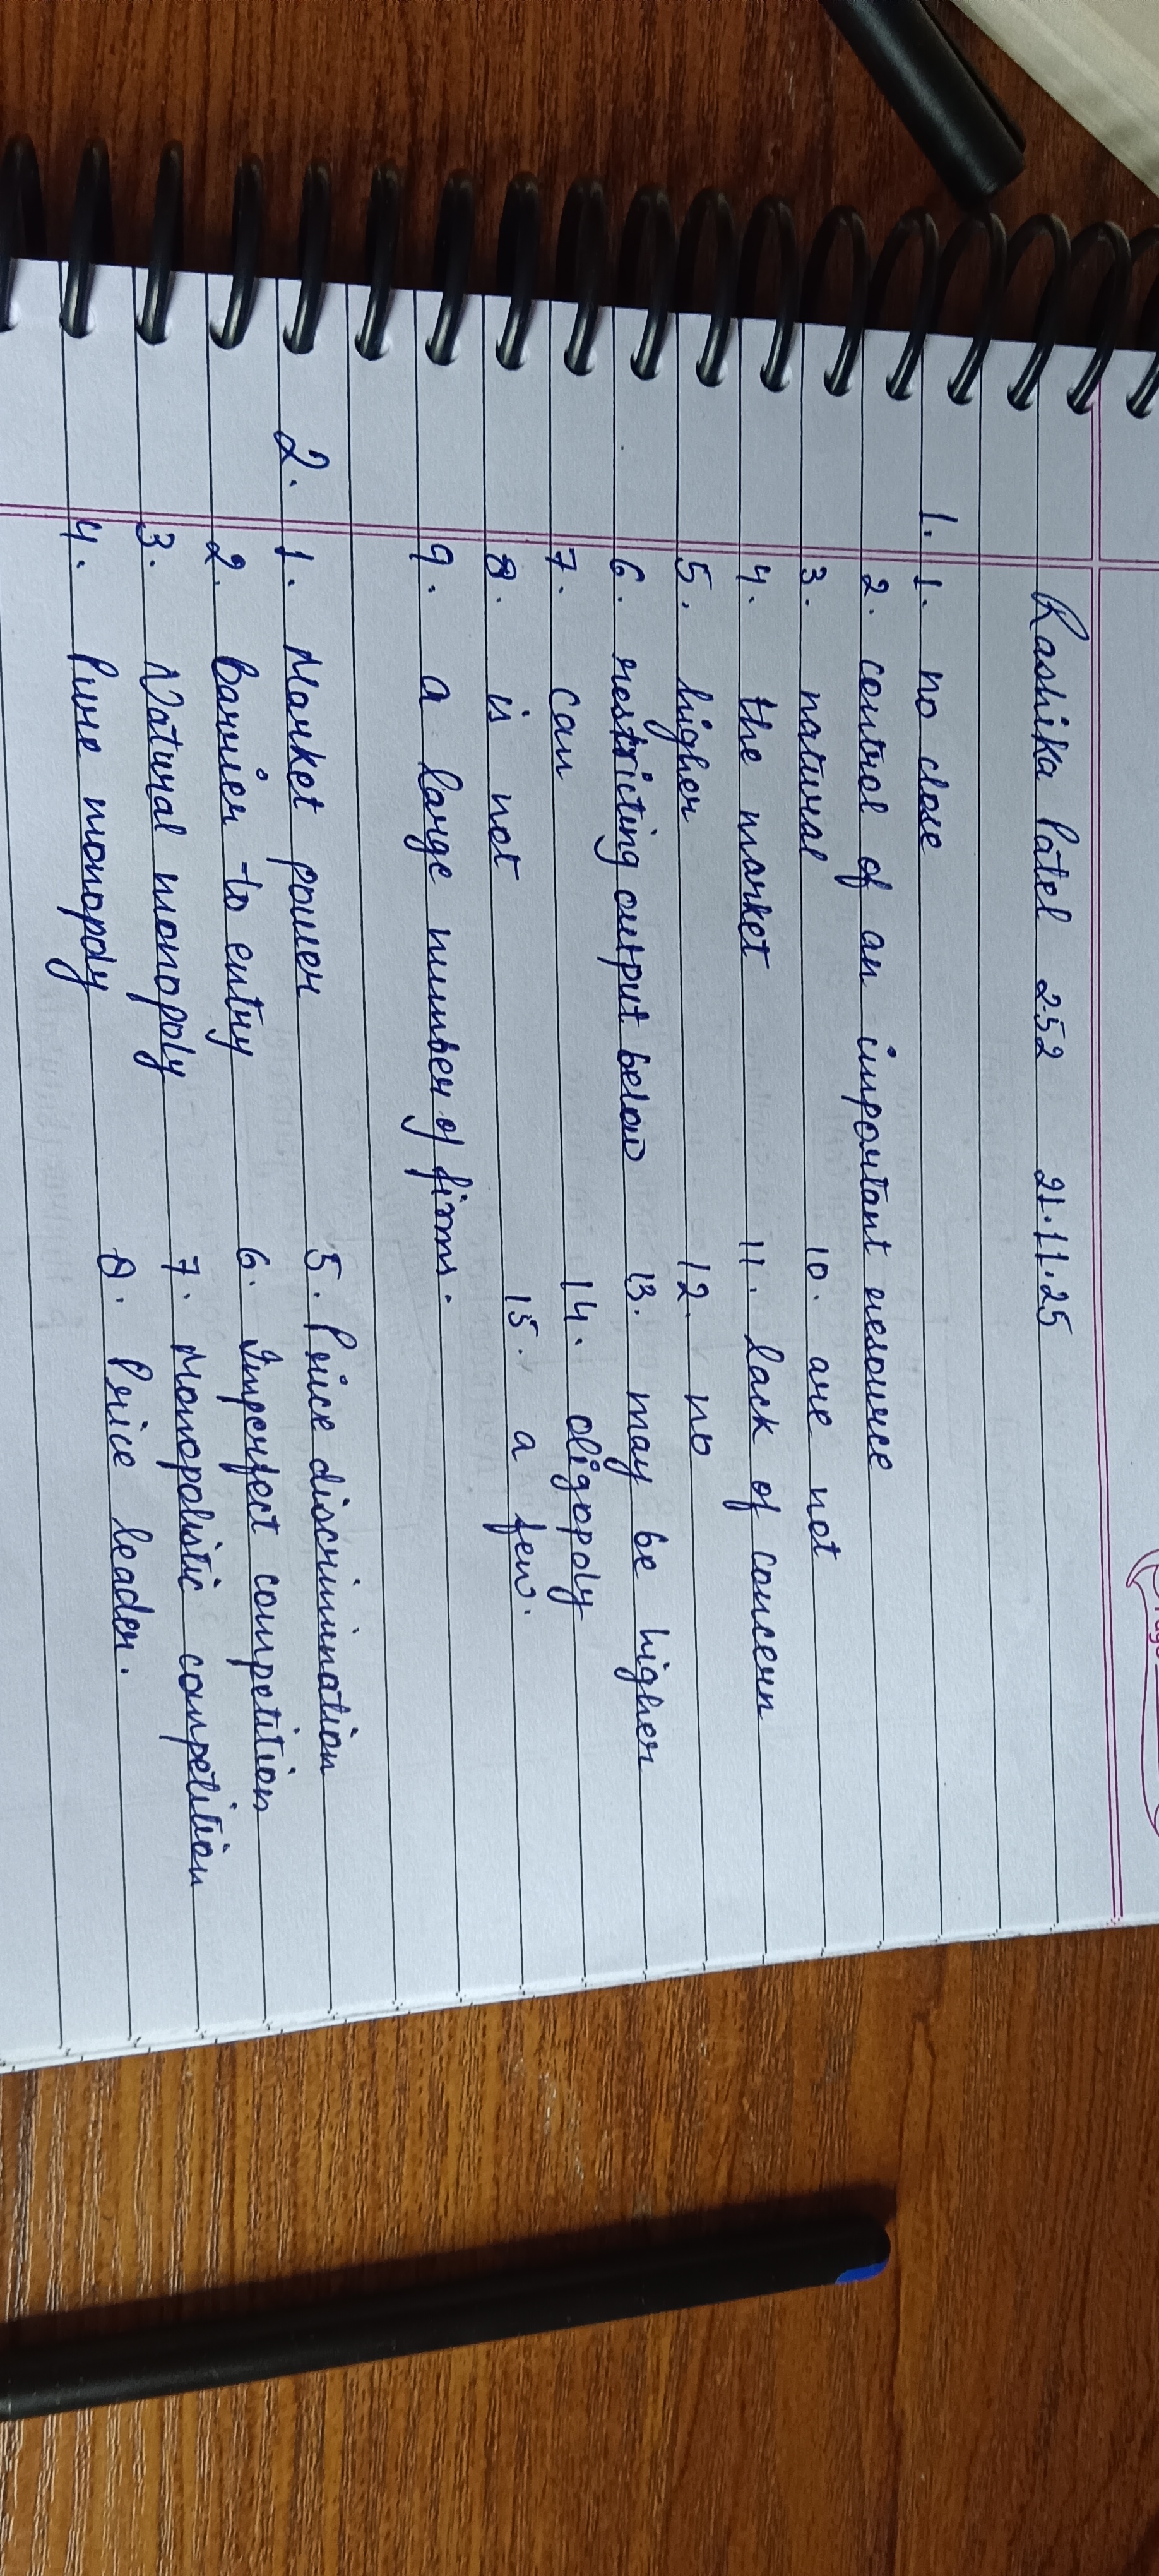 Rashika Patel 252 21.11.25
1. 1. no close
2. control of an important resource
3. natural 10. are not
4. the market 11. lack of concern
5. higher 12. no
6. restricting output below 13. may be higher
7. can 14. oligopoly
8. is not 15. a few.
9. a large number of firms.
2. 1. Market power 5. Price discrimination
2. Barrier to entry 6. Imperfect competition
3. Natural monopoly 7. Monopolistic competition
4. Pure monopoly 8. Price leader.